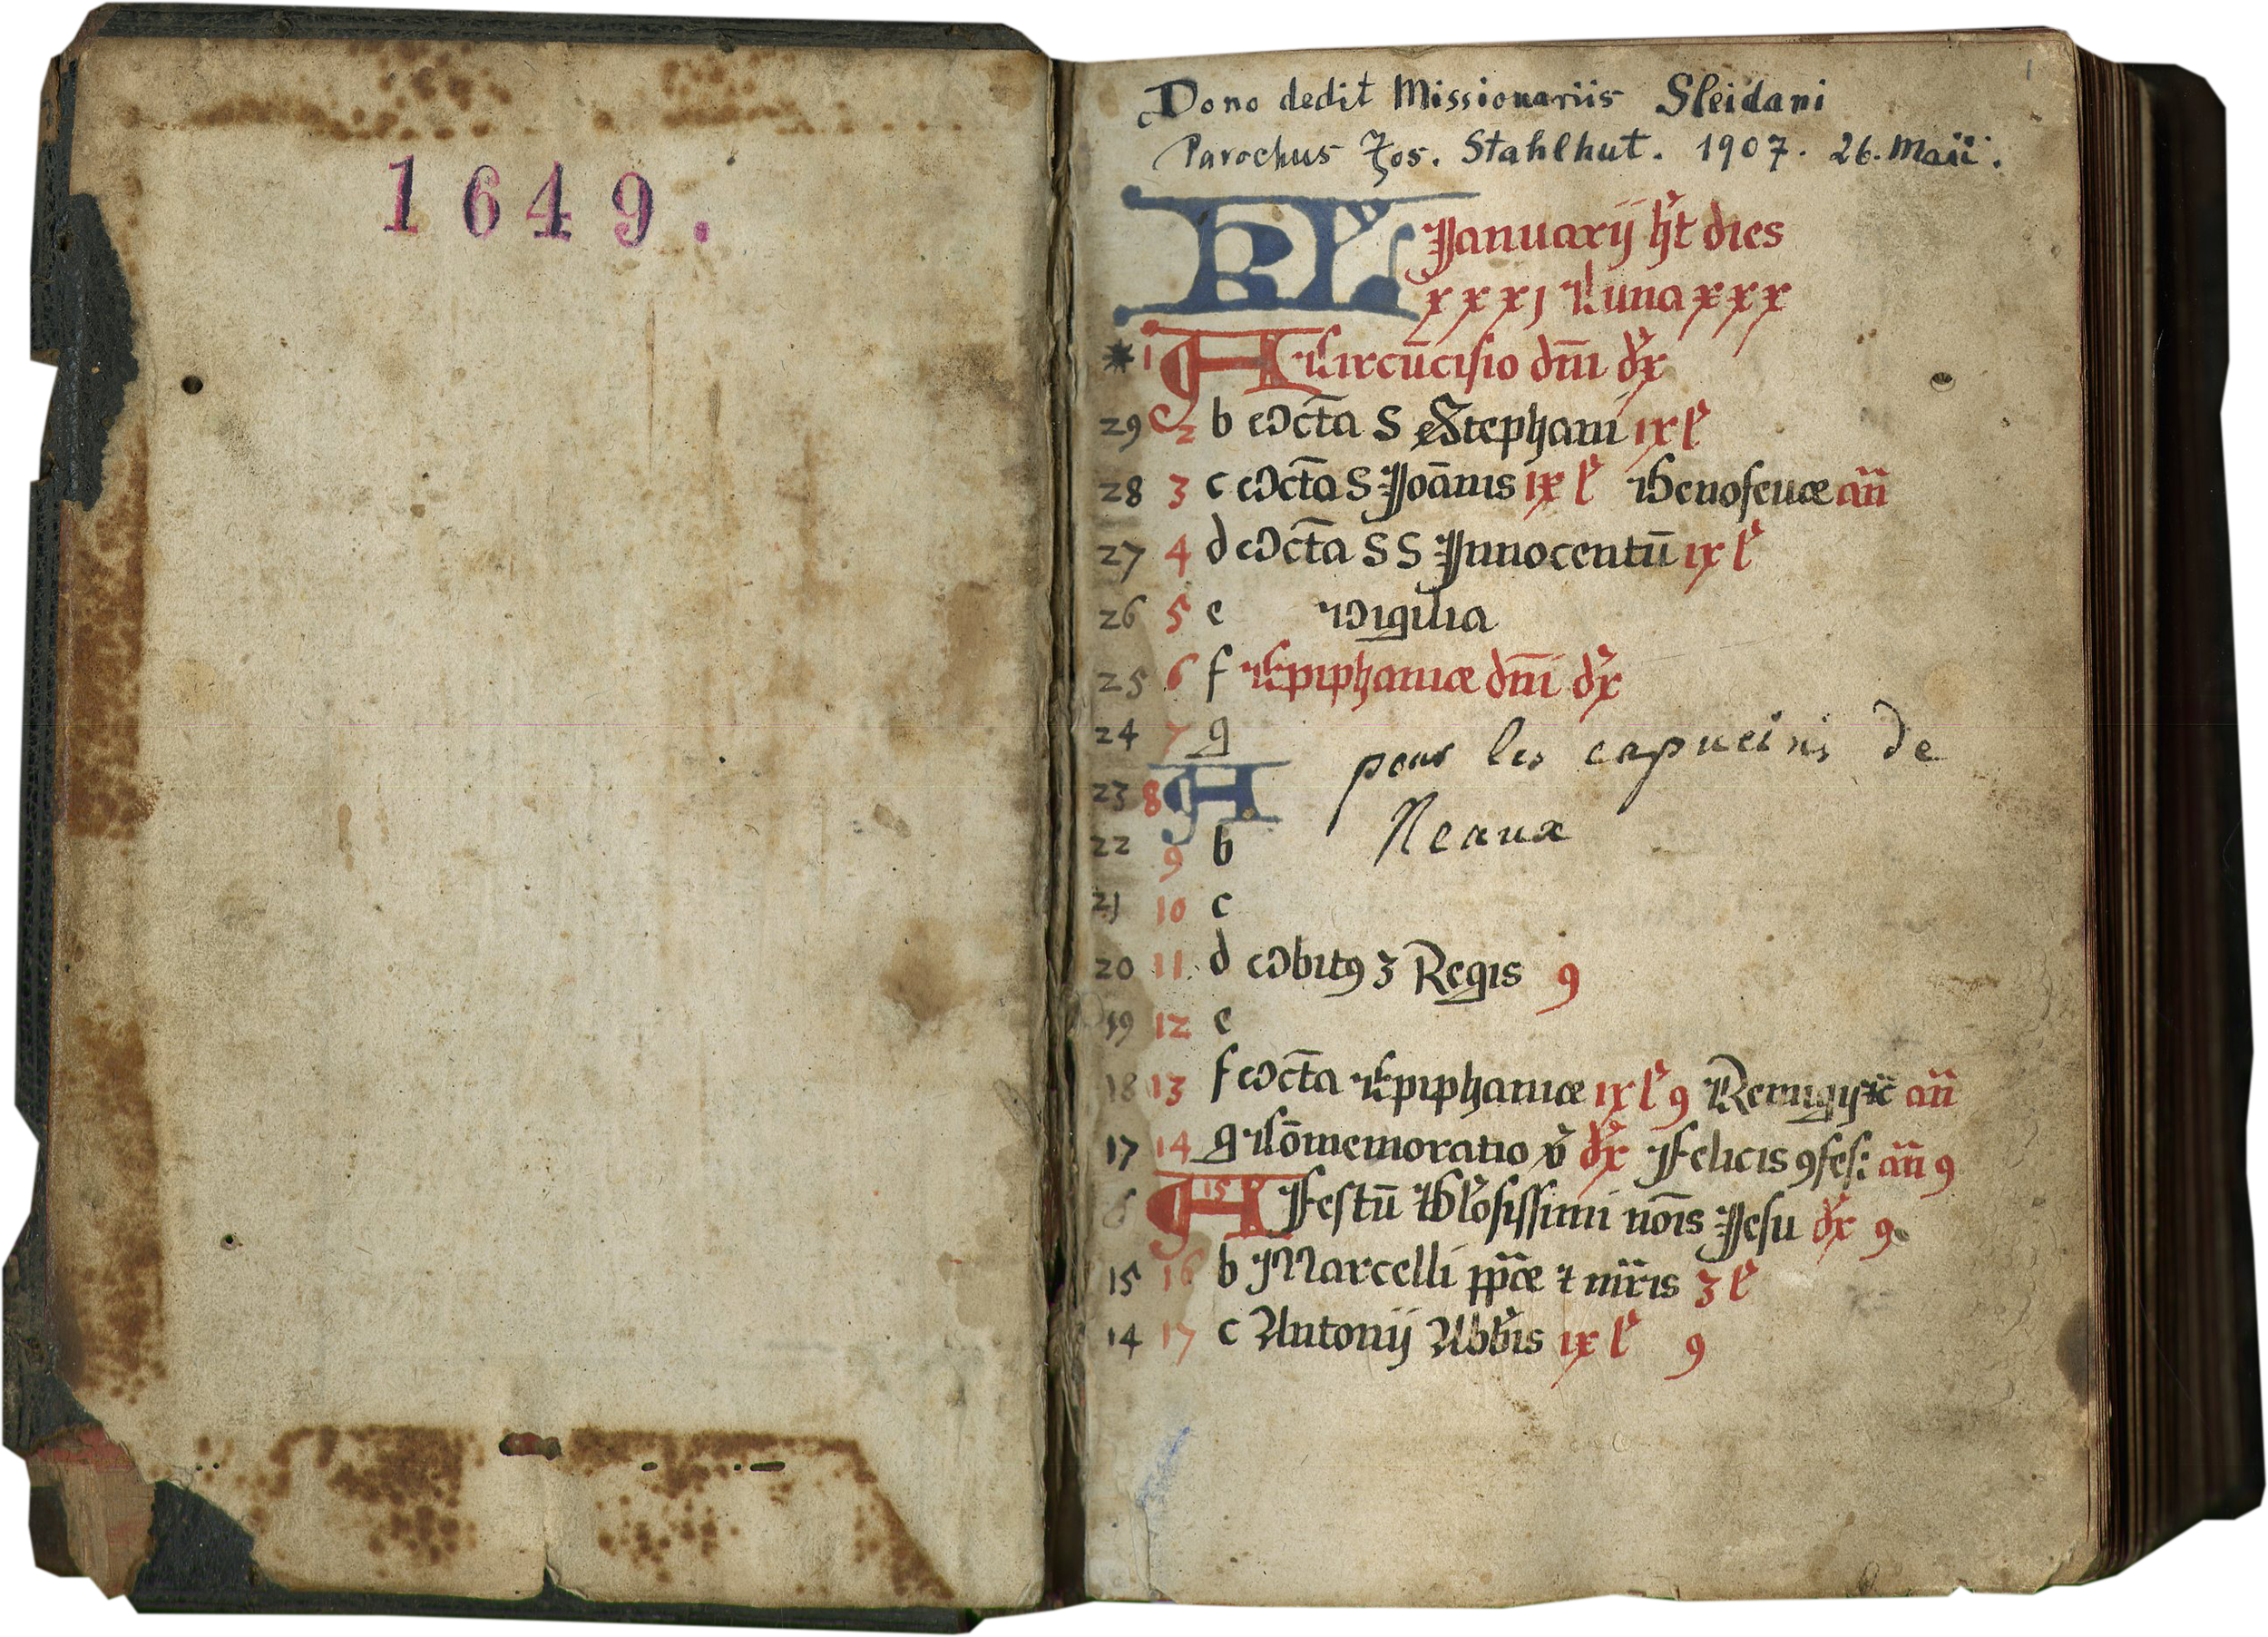 1649.
1
Dono dedit Missionariis Sleidani
Parochus Jos. Stahlhut. 1907. 26. Maii.
KL Januarij hꝫt dies
xxxj Luna xxx
* 1 A Circūcisio dn̄i dx̄
29 2 b Octā S Stephani ix l̄
28 3 c Octā S Joānis ix l̄ Genofeuæ añ
27 4 d Octā S S Innocentū ix l̄
26 5 e Vigilia
25 6 f Epiphaniæ dn̄i dx̄
24 7 g pour les capucins de
23 8 A Neaux
22 9 b
21 10 c
20 11 d Obitꝯ 3 Regis 9
19 12 e
18 13 f Octā Epiphaniæ ix l̄ 9 Remigij añ
17 14 g Cōmemoratio dx̄ Felicis ꝯfes: añ 9
6 15 A Festū Gl̄osissimi nōis Jesu dx̄ 9
15 16 b Marcelli pp̄æ ⁊ mr̄is 3 l̄
14 17 c Antonij Abb̄is ix l̄ 9